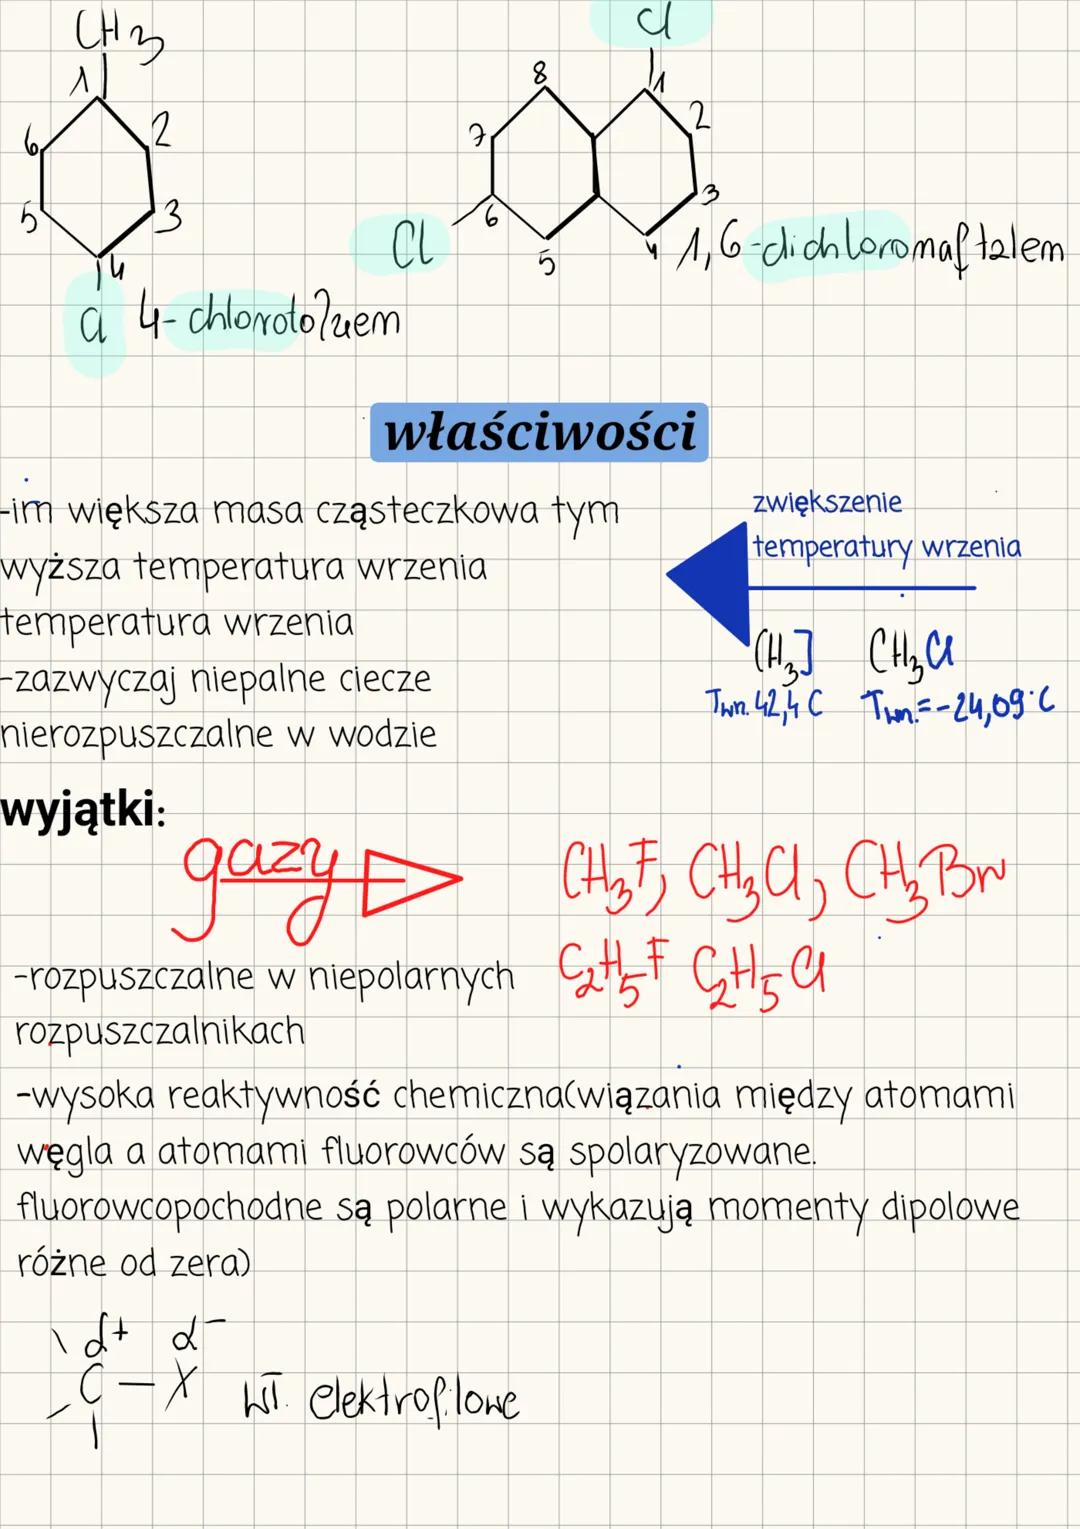 CH3
Cl
1
6
2
5
3
4
Cl 4-chlorotoluem
8
1
2
7
3
6
5
4
Cl
1,6-dichloronaftalem
właściwości
-im większa masa cząsteczkowa tym
wyższa temperatura wrzenia
temperatura wrzenia
-zazwyczaj niepalne ciecze
nierozpuszczalne w wodzie
zwiększenie
temperatury wrzenia
CH3J CH3Cl
Twn. 42,4 C Twn.=-24,09°C
wyjątki:
gazy
CH3F, CH3Cl, CH3Br
C2H5F C2H5Cl
-rozpuszczalne w niepolarnych
rozpuszczalnikach
-wysoka reaktywność chemiczna(wiązania między atomami
węgla a atomami fluorowców są spolaryzowane.
fluorowcopochodne są polarne i wykazują momenty dipolowe
różne od zera)
δ+ δ-
C - X wł. elektrofilowe